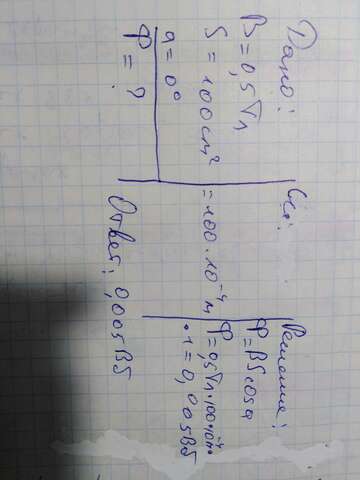 Дано:
B = 0,5 Тл
S = 100 см²
α = 0°
Ф = ?
Си:
= 100 · 10⁻⁴ м
Решение:
Ф = BS cos α
Ф = 0,5 Тл · 100 · 10⁻⁴ ·
· 1 = 0,005 Вб
Ответ: 0,005 Вб